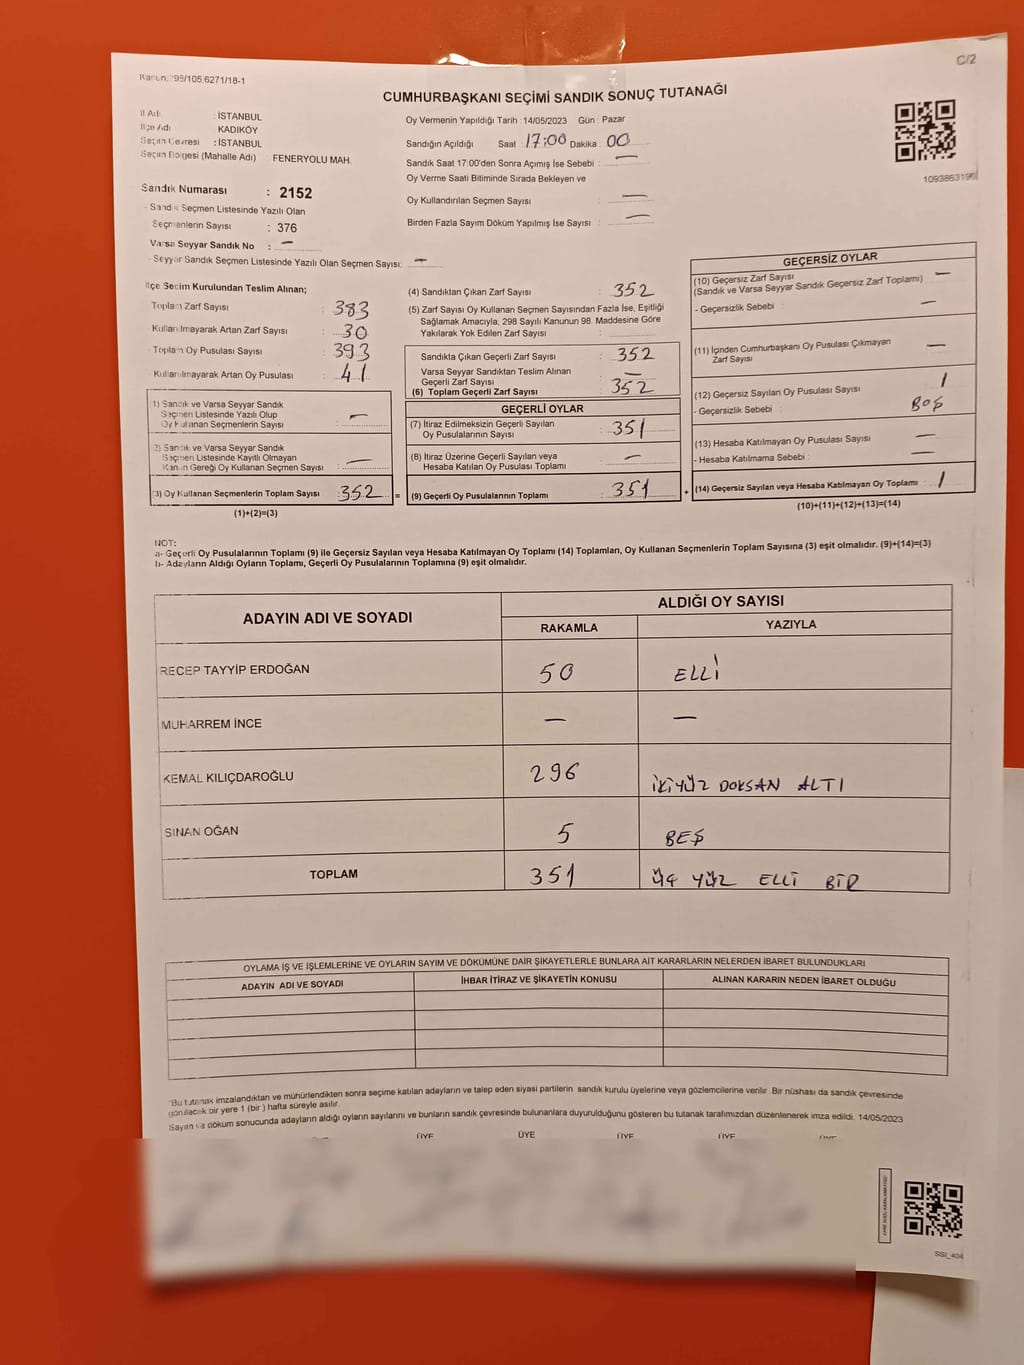 Kanun: 298/105,6271/18-1
C/2
CUMHURBAŞKANI SEÇİMİ SANDIK SONUÇ TUTANAĞI
İl Adı : İSTANBUL
İlçe Adı : KADIKÖY
Seçim Çevresi : İSTANBUL
Seçim Bölgesi (Mahalle Adı) : FENERYOLU MAH.
Sandık Numarası : 2152
- Sandık Seçmen Listesinde Yazılı Olan
Seçmenlerin Sayısı : 376
Varsa Seyyar Sandık No : —
- Seyyar Sandık Seçmen Listesinde Yazılı Olan Seçmen Sayısı: —
Oy Vermenin Yapıldığı Tarih : 14/05/2023 Gün : Pazar
Sandığın Açıldığı Saat : 17:00 Dakika : 00
Sandık Saat 17:00'den Sonra Açımış İse Sebebi : —
Oy Verme Saati Bitiminde Sırada Bekleyen ve
Oy Kullandırılan Seçmen Sayısı : —
Birden Fazla Sayım Döküm Yapılmış İse Sayısı : —
1093863196
İlçe Seçim Kurulundan Teslim Alınan;
Toplam Zarf Sayısı : 383
Kullanılmayarak Artan Zarf Sayısı : 30
Toplam Oy Pusulası Sayısı : 393
Kullanılmayarak Artan Oy Pusulası : 41
(1) Sandık ve Varsa Seyyar Sandık
Seçmen Listesinde Yazılı Olup
Oy Kullanan Seçmenlerin Sayısı : —
(2) Sandık ve Varsa Seyyar Sandık
Seçmen Listesinde Kayıtlı Olmayan
Kanun Gereği Oy Kullanan Seçmen Sayısı : —
(3) Oy Kullanan Seçmenlerin Toplam Sayısı : 352 =
(1)+(2)=(3)
(4) Sandıktan Çıkan Zarf Sayısı : 352
(5) Zarf Sayısı Oy Kullanan Seçmen Sayısından Fazla İse, Eşitliği
Sağlamak Amacıyla; 298 Sayılı Kanunun 98. Maddesine Göre
Yakılarak Yok Edilen Zarf Sayısı :
Sandıkta Çıkan Geçerli Zarf Sayısı : 352
Varsa Seyyar Sandıktan Teslim Alınan
Geçerli Zarf Sayısı : —
(6) Toplam Geçerli Zarf Sayısı : 352
GEÇERLİ OYLAR
(7) İtiraz Edilmeksizin Geçerli Sayılan
Oy Pusulalarının Sayısı : 351
(8) İtiraz Üzerine Geçerli Sayılan veya
Hesaba Katılan Oy Pusulası Toplamı : —
(9) Geçerli Oy Pusulalarının Toplamı : 351 +
GEÇERSİZ OYLAR
(10) Geçersiz Zarf Sayısı : —
(Sandık ve Varsa Seyyar Sandık Geçersiz Zarf Toplamı)
- Geçersizlik Sebebi : —
(11) İçinden Cumhurbaşkanı Oy Pusulası Çıkmayan
Zarf Sayısı : —
(12) Geçersiz Sayılan Oy Pusulası Sayısı : 1
- Geçersizlik Sebebi : BOŞ
(13) Hesaba Katılmayan Oy Pusulası Sayısı : —
- Hesaba Katılmama Sebebi : —
(14) Geçersiz Sayılan veya Hesaba Katılmayan Oy Toplamı : 1
(10)+(11)+(12)+(13)=(14)
NOT:
a- Geçerli Oy Pusulalarının Toplamı (9) ile Geçersiz Sayılan veya Hesaba Katılmayan Oy Toplamı (14) Toplamları, Oy Kullanan Seçmenlerin Toplam Sayısına (3) eşit olmalıdır. (9)+(14)=(3)
b- Adayların Aldığı Oyların Toplamı, Geçerli Oy Pusulalarının Toplamına (9) eşit olmalıdır.
ADAYIN ADI VE SOYADI ALDIĞI OY SAYISI
RAKAMLA YAZIYLA
RECEP TAYYİP ERDOĞAN 50 ELLİ
MUHARREM İNCE — —
KEMAL KILIÇDAROĞLU 296 İKİYÜZ DOKSAN ALTI
SİNAN OĞAN 5 BEŞ
TOPLAM 351 ÜÇ YÜZ ELLİ BİR
OYLAMA İŞ VE İŞLEMLERİNE VE OYLARIN SAYIM VE DÖKÜMÜNE DAİR ŞİKAYETLERLE BUNLARA AİT KARARLARIN NELERDEN İBARET BULUNDUKLARI
ADAYIN ADI VE SOYADI İHBAR İTİRAZ VE ŞİKAYETİN KONUSU ALINAN KARARIN NEDEN İBARET OLDUĞU
*Bu tutanak imzalandıktan ve mühürlendikten sonra seçime katılan adayların ve talep eden siyasi partilerin sandık kurulu üyelerine veya gözlemcilerine verilir. Bir nüshası da sandık çevresinde
görülecek bir yere 1 (bir ) hafta süreyle asılır.
Sayım ve döküm sonucunda adayların aldığı oyların sayılarını ve bunların sandık çevresinde bulunanlara duyurulduğunu gösteren bu tutanak tarafımızdan düzenlenerek imza edildi. 14/05/2023
ÜYE ÜYE ÜYE ÜYE
SSI_404